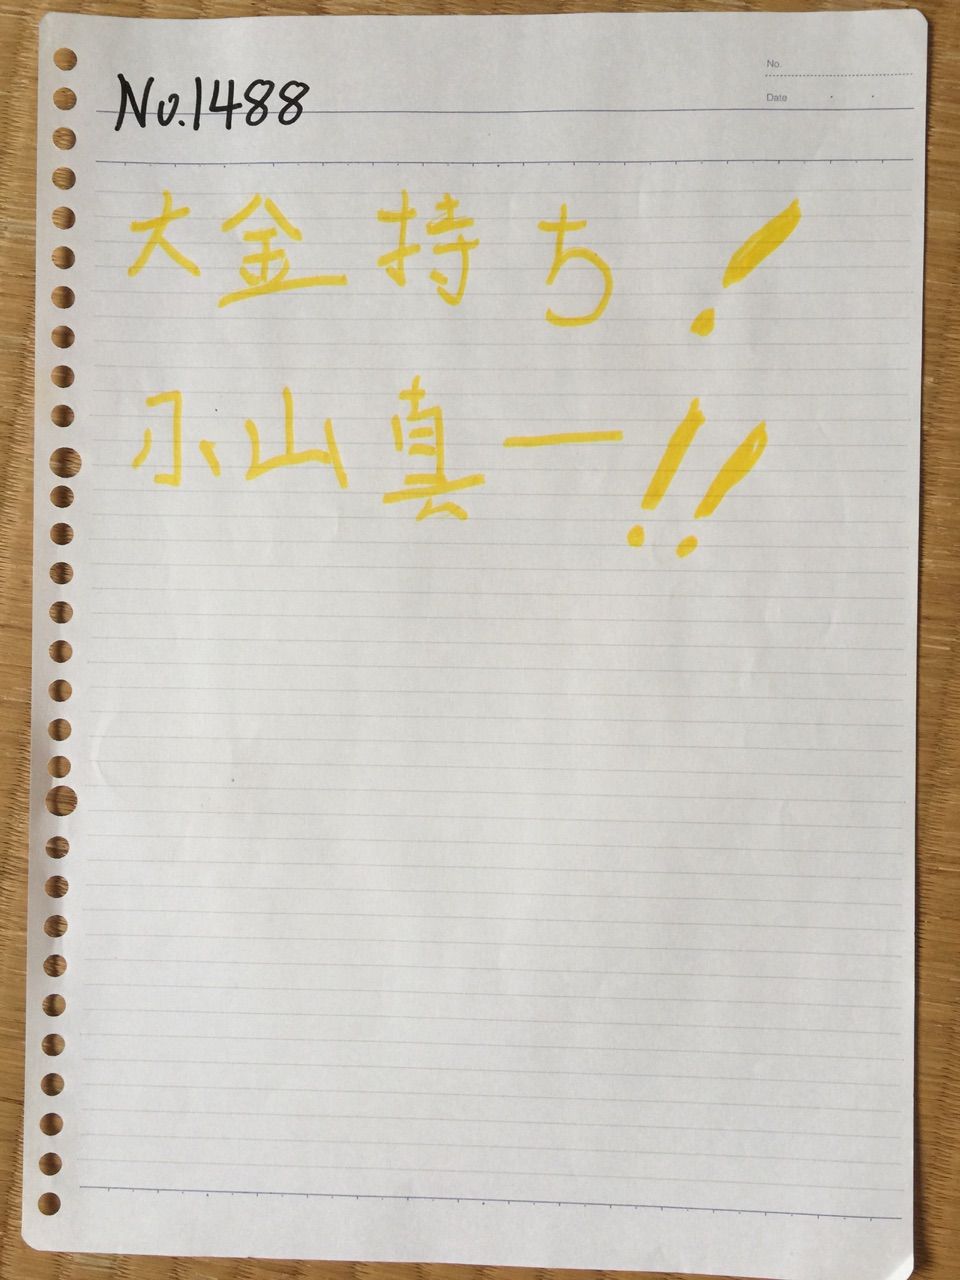 No.
Date
No.1488
大金持ち!
小山真一!!